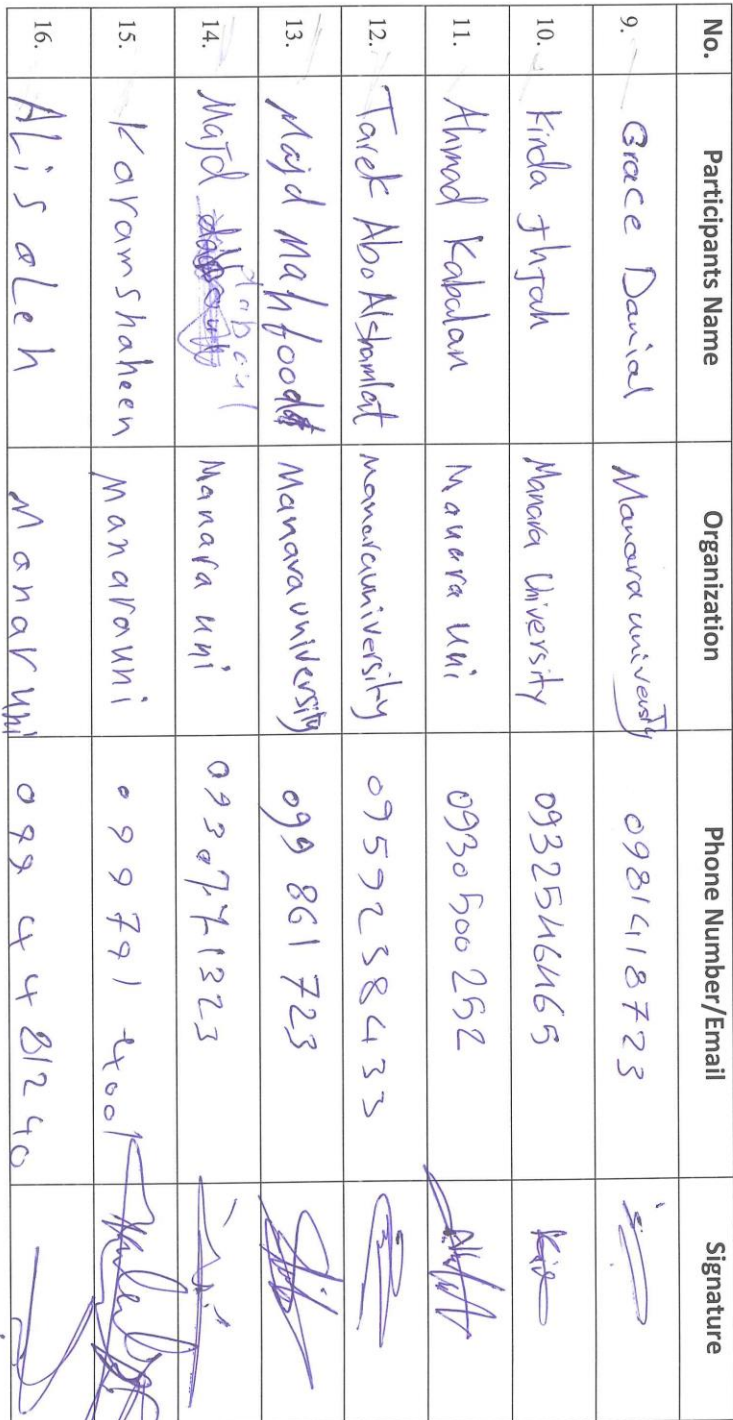 No. Participants Name Organization Phone Number/Email Signature
9. Grace Danial Manara university 0981418723
10. Kinda Manara University 0932546465
11. Ahmad Kabalan Manara uni 0930500252
12. Tarek Abo Alshamlat manarauniversity 0959238433
13. Majd Mahfood Manarauniversity 099 861 723
14. Majd Manara uni 0930771323
15. Karamshaheen Manarauni 0999791 4001
16. ALisaLeh Manaruni 099 4 4 81240